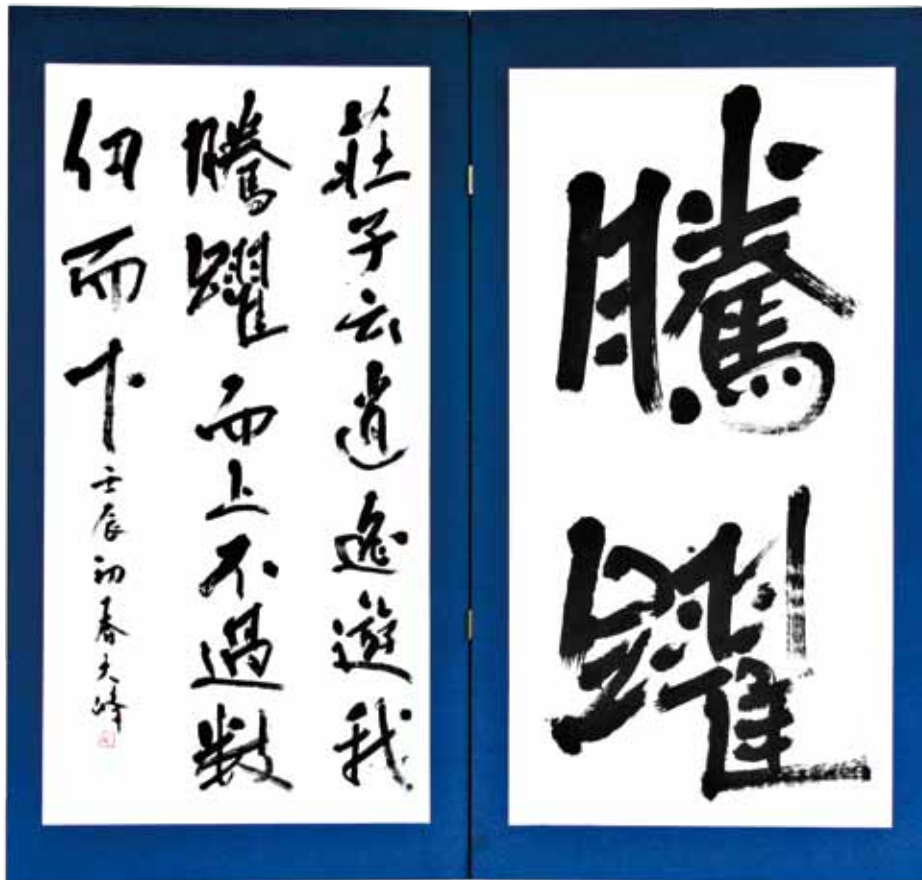 騰躍
莊子云逍遙遊我
騰躍而上不過數
仞而下壬辰初春天峰